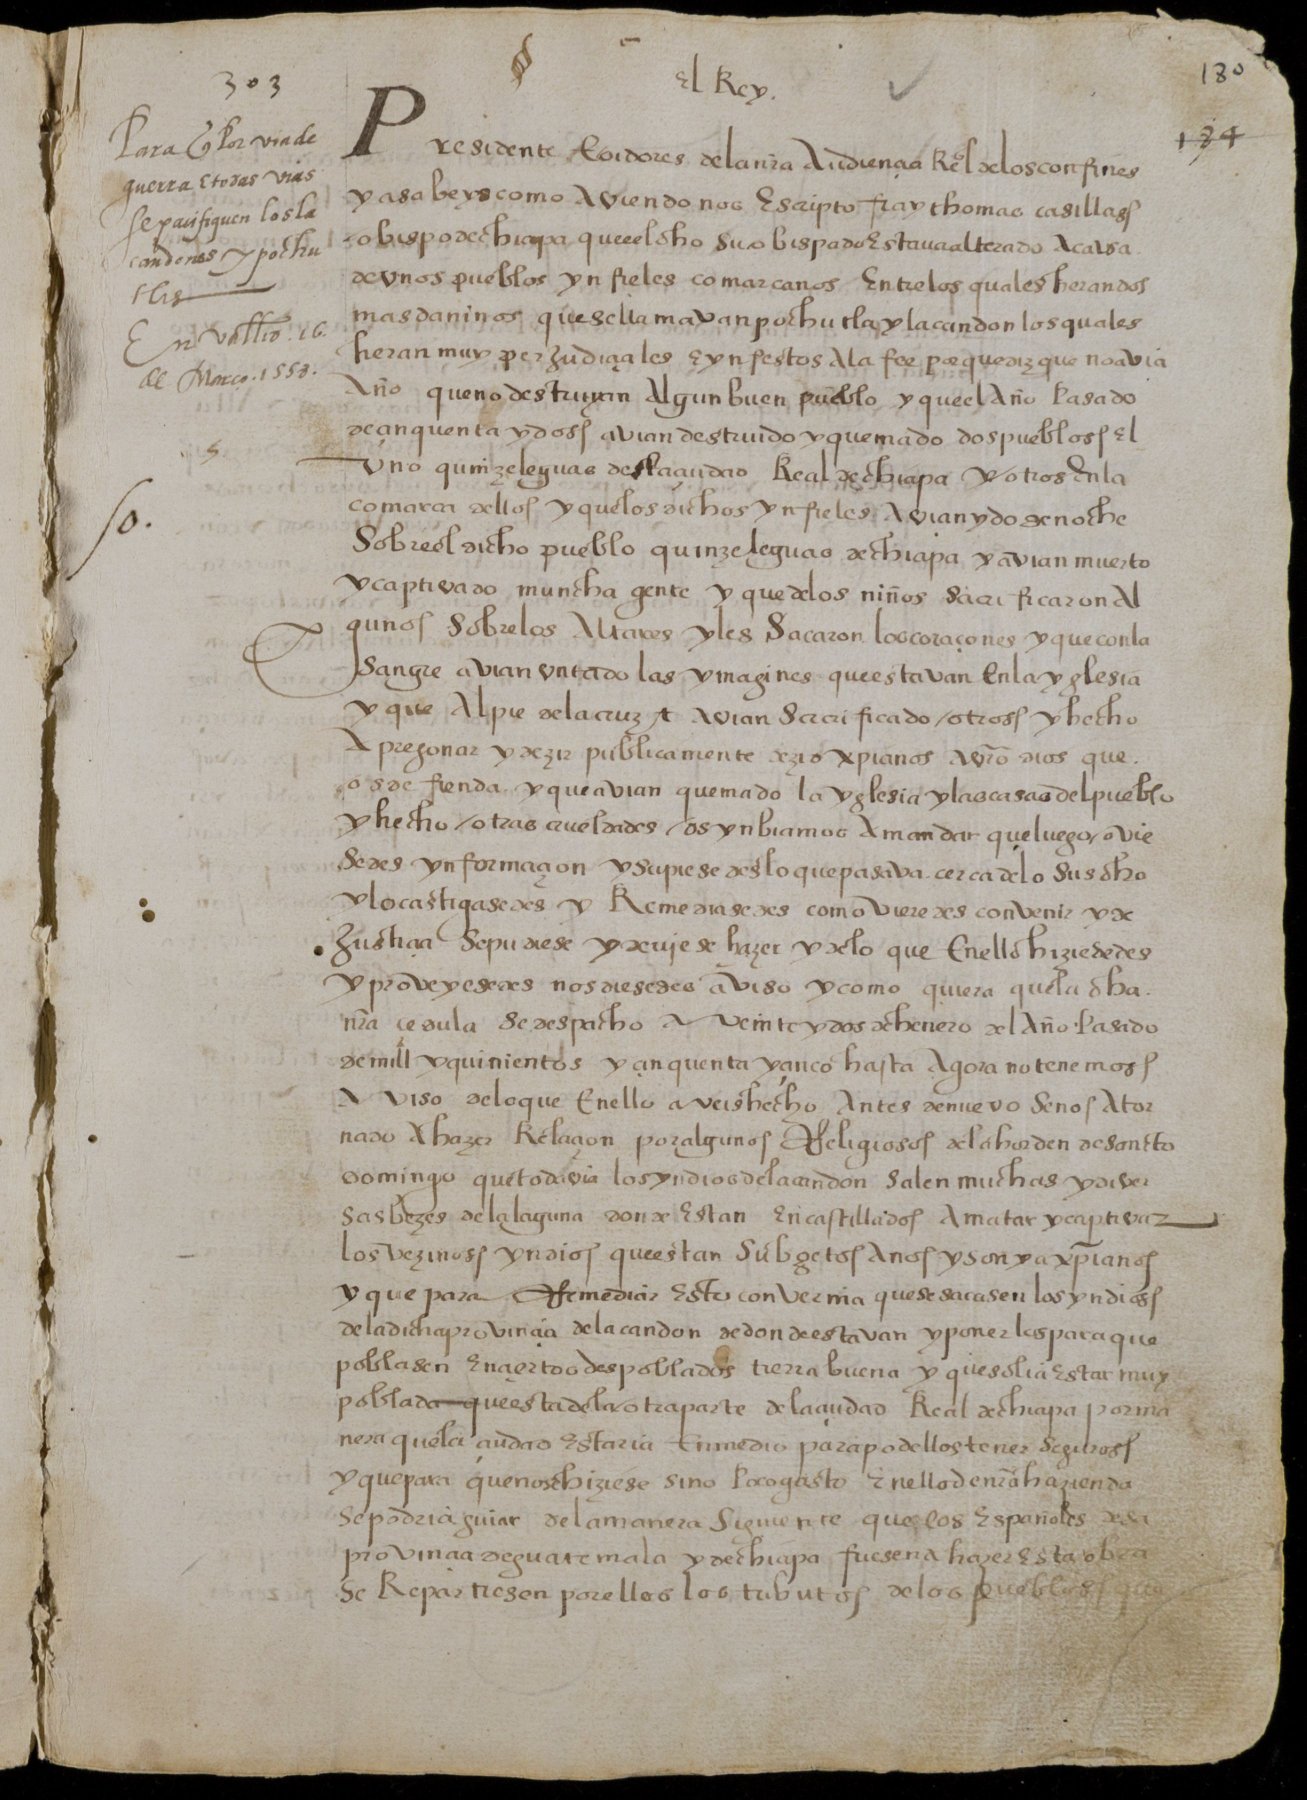 303
180
El Rey.
134
Para q̃ Por via de
guerra E todas vias
se pacifiquen los la
candones y pochu
tlas
En Vallid. 16.
de Março. 1558.
so.
Presidente E oidores de la nr̃a Audiençia Rẽl de los confines
ya sabeys como Aviendo nos Escripto fray thomas casillass
obispo de chiapa que el dho su obispado Estava alterado A causa
de unos pueblos ynfieles comarcanos Entre los quales heran dos
mas daninos que se llamavan pochutla y lacandon los quales
heran muy perjudiçiales E ynfestos A la fee porque diz que no avia
Año que no destruyan Algun buen pueblo y que el Año Pasado
de çinquenta y doss avian destruido y quemado dos puebloss El
uno quinze leguas de la çiudad Real de chiapa y otros En la
comarca dellos y que los dichos ynfieles Avian ydo de noche
Sobre el dicho pueblo quinze leguas de chiapa y avian muerto
y captivado muncha gente y que de los niños sacrificaron Al
gunos Sobre los Altares y les Sacaron los coraçones y que con la
Sangre avian untado las ymagines que estavan En la yglesia
y que Al pie de la cruz Avian Sacrificado otross y hecho
A pregonar y dezir publicamente dezid xpianos A vr̃o dios que
os defienda y que avian quemado la yglesia y las casas del pueblo
y hecho otras crueldades os ynbiamos A mandar que luego ovie
sedes ynformaçion y supiesedes lo que pasava çerca de lo Susdho
y lo castigasedes y Remediasedes como vieredes convenir y de
Justiçia Se pudiese y deviese hazer y de lo que En ello hiziesedes
y proveyesedes nos diesedes aviso y como quiera que la dha
nr̃a çedula se despacho A veinte y dos de henero del Año Pasado
de mill y quinientos y çinquenta y çinco hasta Agora no tenemoss
Aviso de lo que En ello aveis hecho Antes de nuevo Se nos A tor
nado A hazer Relaçion por algunos Religiosos de la horden de sancto
domingo que todavia los yndios de lacandon salen muchas y diver
sas bezes de la laguna donde Estan Encastillados A matar y captivar
los vezinoss yndios que estan Subgetos A nos y son ya xp̃ianos
y que para Remediar Esto convernia que se sacasen los yndioss
de la dicha provinçia de lacandon de donde estavan y ponerlos para que
poblasen En çiertos despoblados tierra buena y que solia Estar muy
poblada que esta de la otra parte de la çiudad Real de chiapa por ma
nera que la çiudad Estaria En medio para podellos tener Seguross
y que para que no se hiziese sino Poco gasto En ello de nr̃a hazienda
se podria guiar de la manera Siguiente que los Españoles desa
provinçia de guatemala y de chiapa fuesen A hazer Esta obra
Se Repartiesen por ellos los tributos de los puebloss que